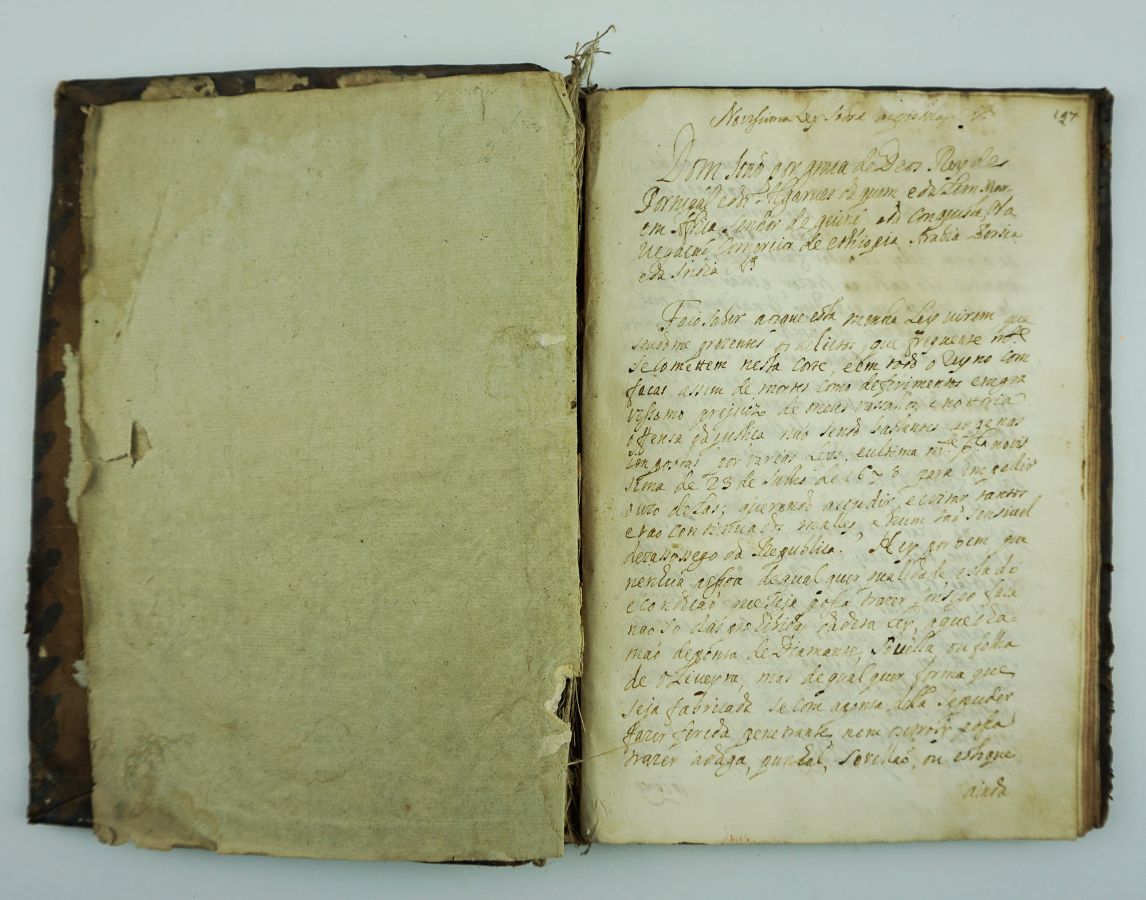 Novissima Ley sobre
197
Dom João por graça de Deos Rey de
Portugal e dos Algarves da quem e da Lem Mar
em Africa Senhor de guiné e da Conquista, Na
vegação Comercio de ethiopia Arabia Persia
e da India &ª
Faço saber aos que esta minha Ley virem que
sendome prezentes os delictos, que frequente mte
se comettem nesta corte, e em todo o Reyno com
facas assim de mortes como de ferimentos em gra
vissimo prejuizo de meus vassalos, e notoria
offensa da justiça não sendo bastantes as penas
impostas por varias Leys, e ultima mte pla novis
sima de 23 de Julho de 1678 para impedir
o uzo dellas; querendo accudir, e evitar tantos
e tao continuados males, e hum tão sensivel
dezassossego da Republica. Hey por bem que
nenhua pessoa de qual quer qualidade estado
e condição que seja possa trazer consigo faca
não so das prohibidas na dita Ley, a que cha
mão de ponta de Diamante, Sovella ou folha
de Oliveyra, mas de qual quer forma que
seja fabricada se com a ponta della se puder
fazer ferida penetrante nem outro sy possa
trazer adaga, punhal, Sovellão, ou estoque
ainda